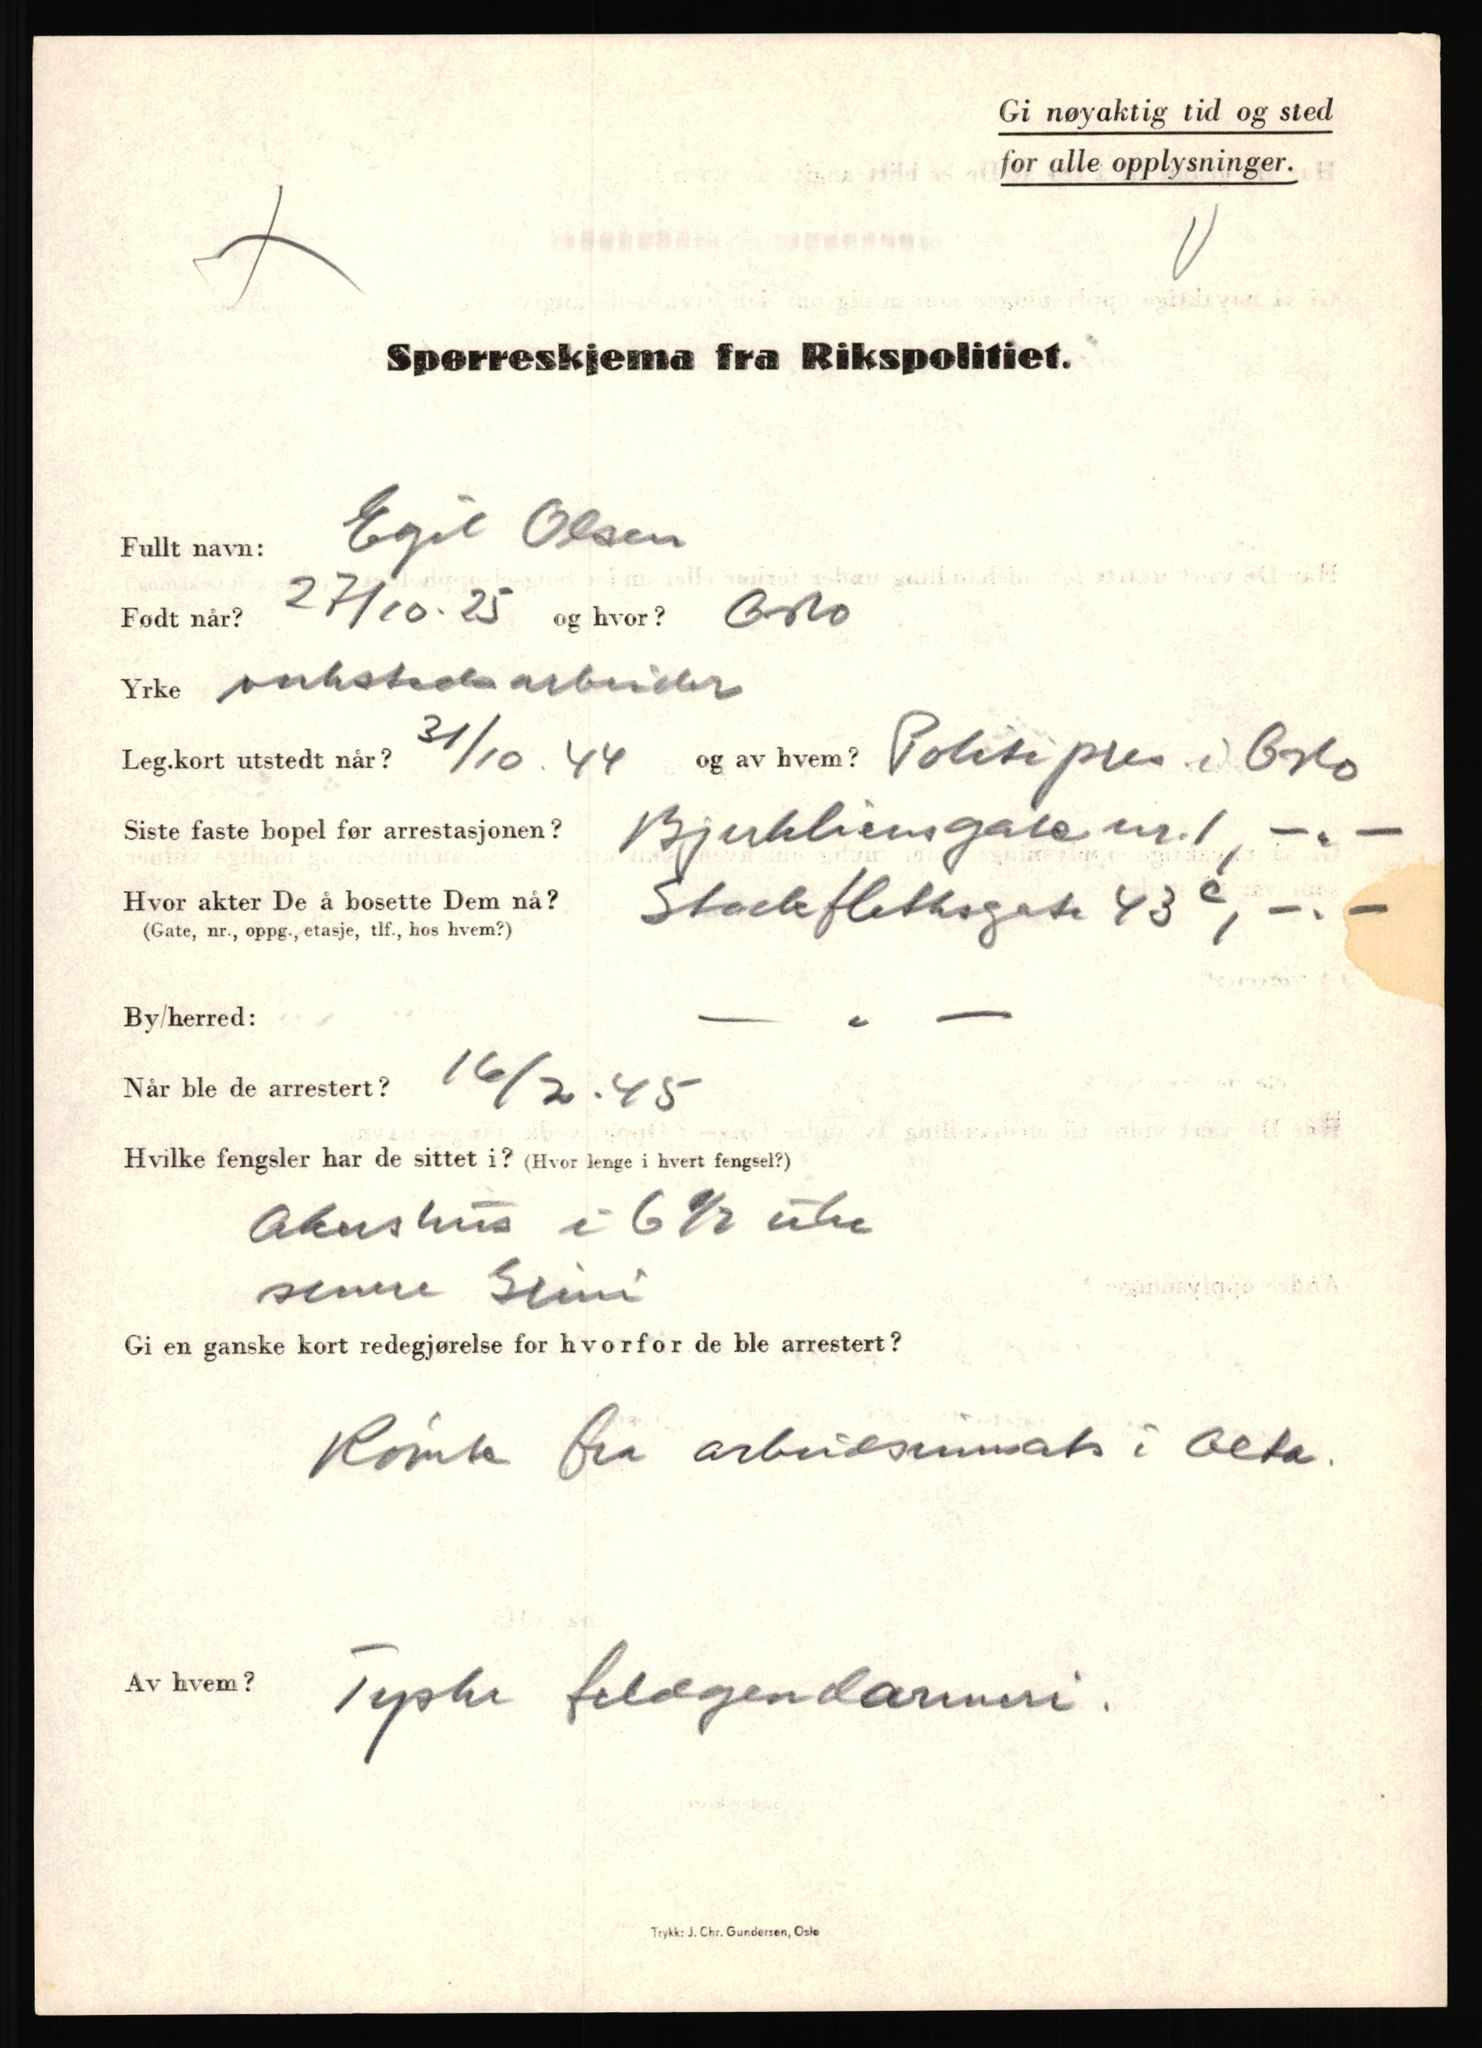 Gi nøyaktig tid og sted
for alle opplysninger.
Spørreskjema fra Rikspolitiet.
Fullt navn: Egil Olsen
Født når? 27/10.25 og hvor? Oslo
Yrke verkstedsarbeider
Leg.kort utstedt når? 31/10.44 og av hvem? Politipres i Oslo
Siste faste bopel før arrestasjonen? Bjerkliensgate nr. 1, — " —
Hvor akter De å bosette Dem nå? Stockflethsgate 43 c, — " —
(Gate, nr., oppg., etasje, tlf., hos hvem?)
By/herred: — " —
Når ble de arrestert? 16/2.45
Hvilke fengsler har de sittet i? (Hvor lenge i hvert fengsel?)
Akershus i 6 1/2 uke
senere Grini
Gi en ganske kort redegjørelse for hvorfor de ble arrestert?
Rømte fra arbeidsinnsats i Alta.
Av hvem? Tyske feldgendarmeri.
Trykk: J. Chr. Gundersen, Oslo